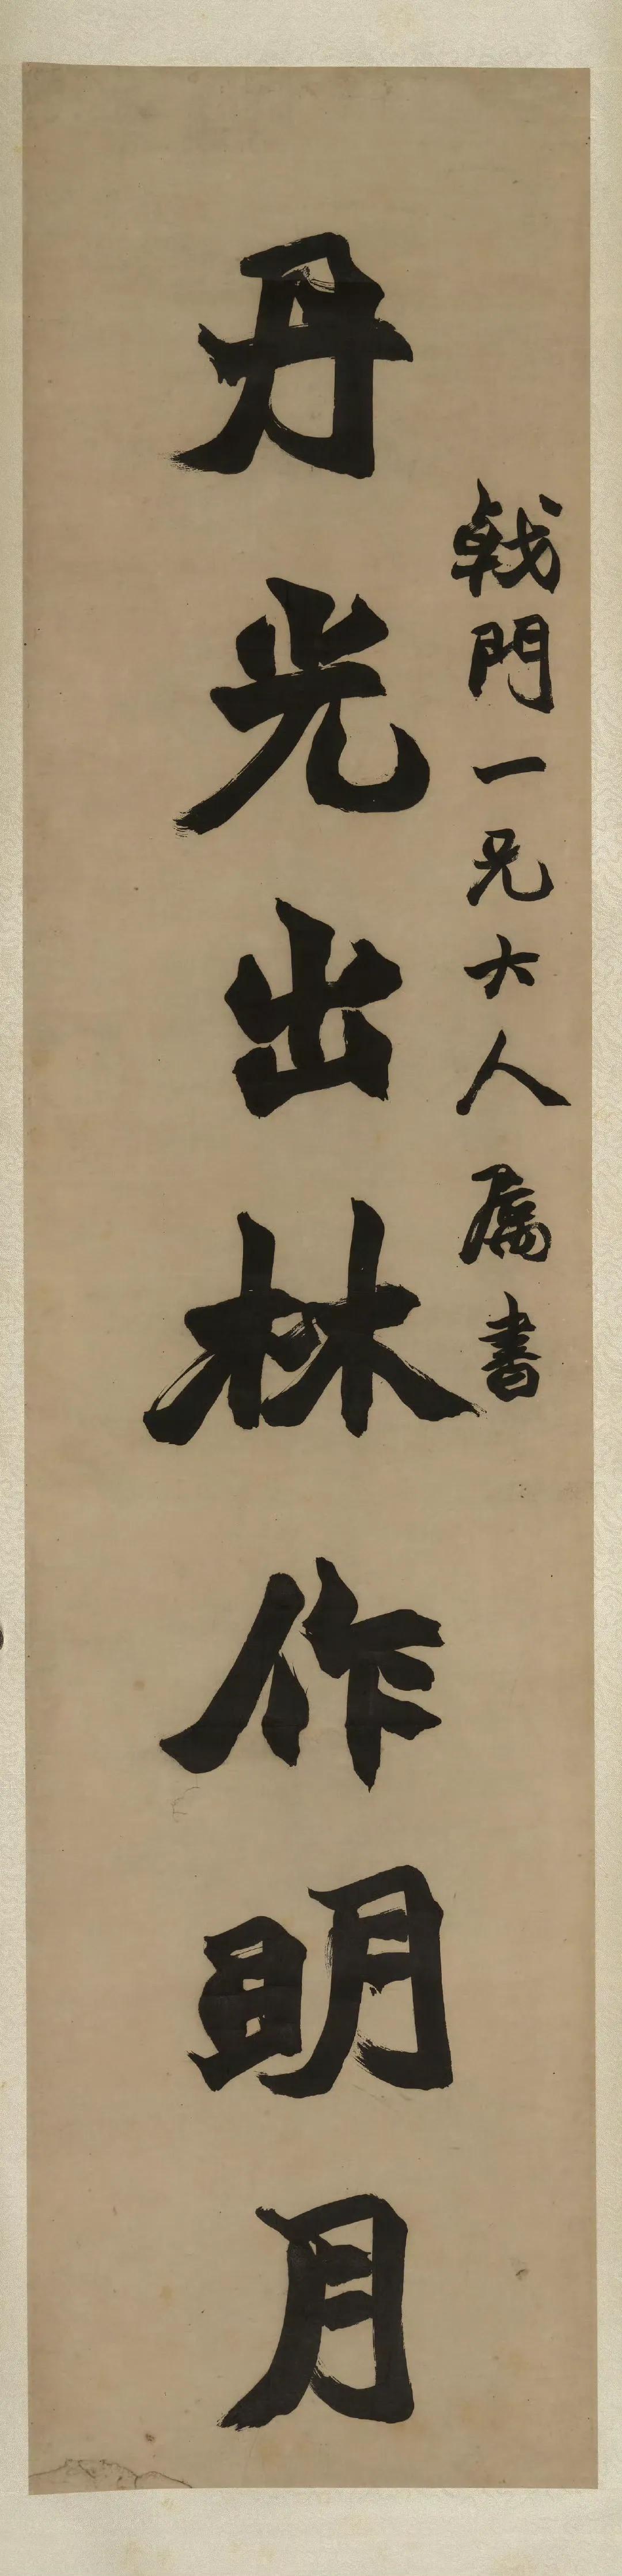 戟門一兄大人屬書
丹光出林作明月